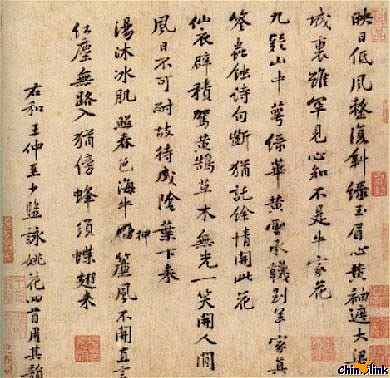 映日低風整復斜綠玉眉心黃袖遮大梁
城裏雖罕見心知不是牛家花
九疑山中萼綠華黃雲承襪到羊家真
筌蟲蝕詩句斷猶託餘情開此花
仙衣襞積駕黃鵠草木無光一笑開人間
風日不可耐故待成陰葉下來
湯沐冰肌照春色海牛押簾風不開直言
紅塵無路入猶傍蜂須蝶翅來
右和王仲至少監詠姚花四首用其韻
chinalink